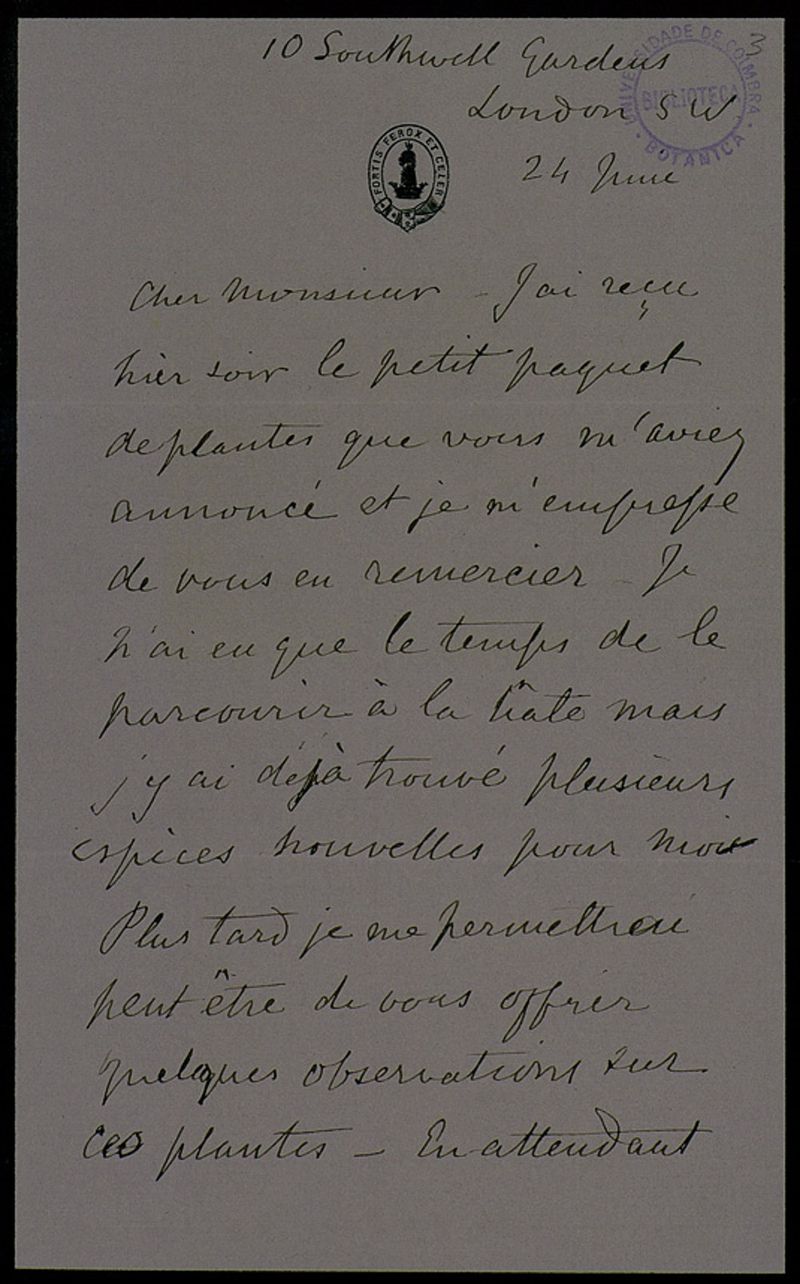 10 Southwell Gardens
London S W
24 June
3
UNIVERSIDADE DE COIMBRA
BIBLIOTECA
BOTANICA
FORTIS FEROX ET CELER
Cher Monsieur - J'ai reçu
hier soir le petit paquet
de plantes que vous m'aviez
annoncé et je m'empresse
de vous en remercier - Je
n'ai eu que le temps de le
parcourir à la hâte mais
j'y ai déjà trouvé plusieurs
espèces nouvelles pour moi
Plus tard je me permettrai
peut être de vous offrir
quelques observations sur
ces plantes - En attendant